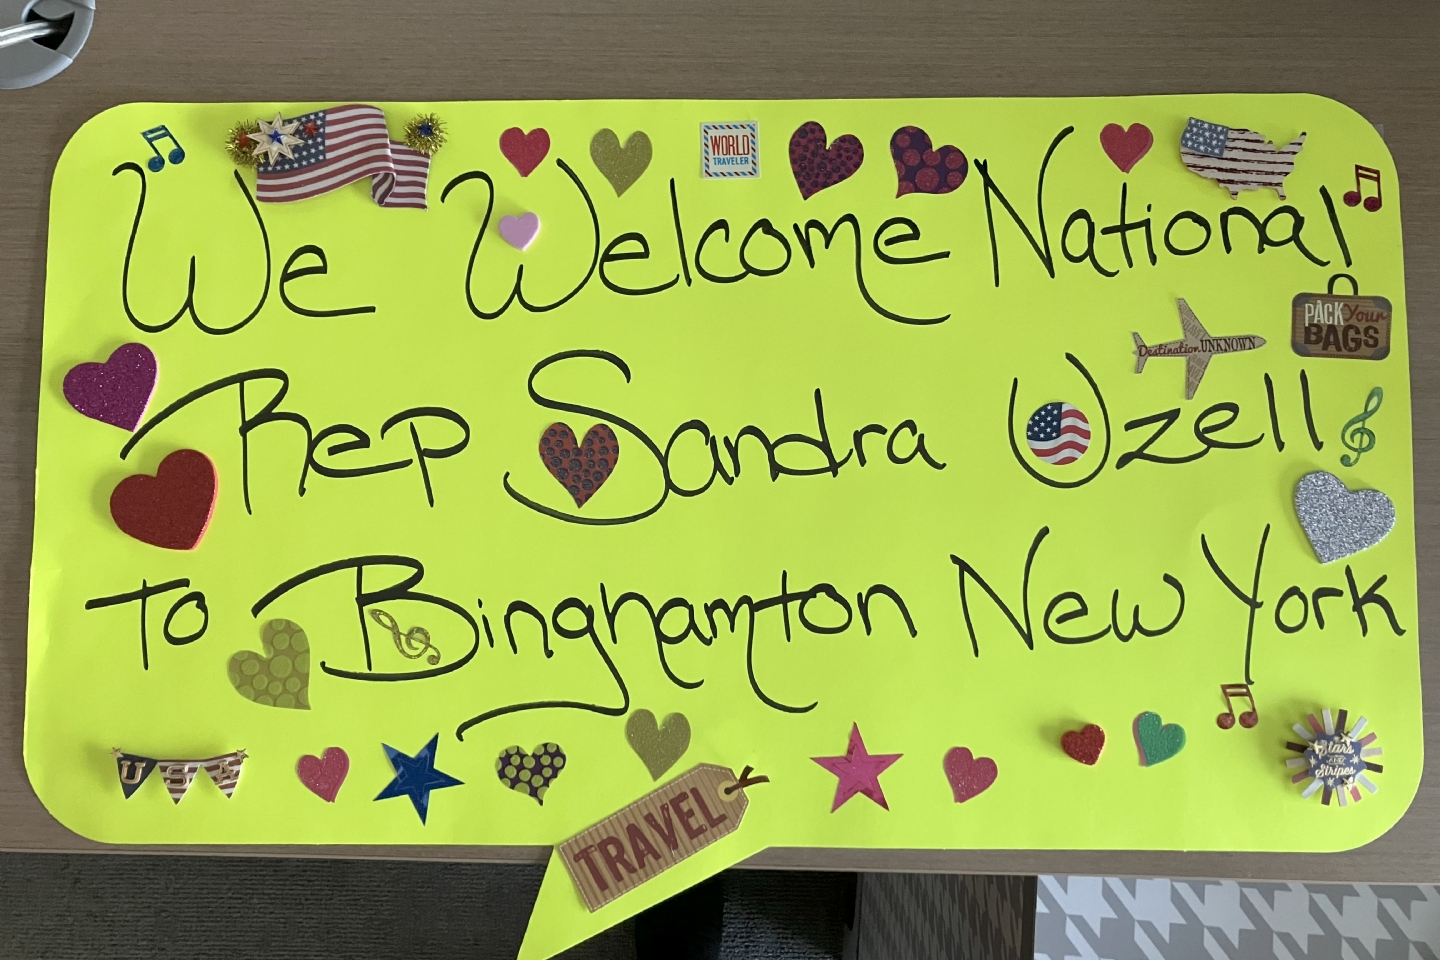 WORLD
TRAVELER
We Welcome National
PACK Your
BAGS
Destination UNKNOWN
Rep Sandra Uzell
To Binghamton New York
USA
Stars
AND
Stripes
TRAVEL